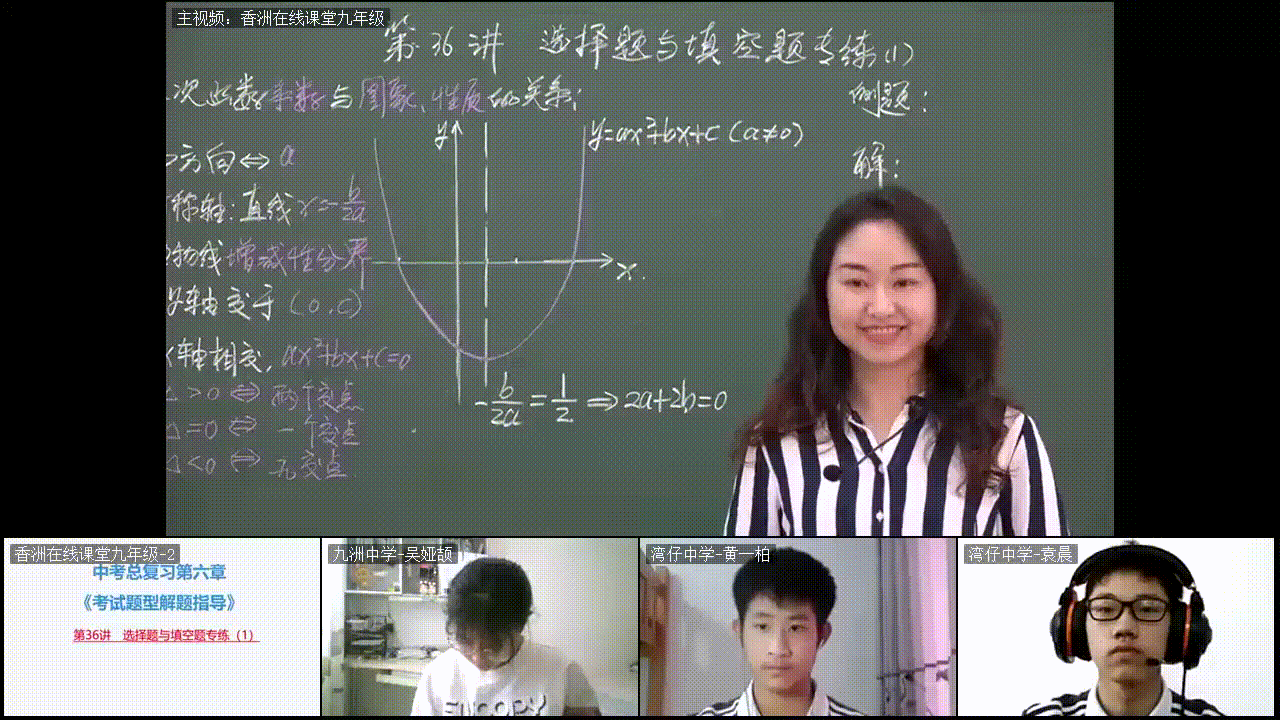 主视频：香洲在线课堂九年级
第36讲 选择题与填空题专练(1)
次函数系数与图象、性质的关系：
例题：
y=ax²+bx+c (a≠0)
方向⇔a
解：
y
称轴：直线x=-b/2a
物线增减性分界
x
y轴交于(0,c)
x轴相交，ax²+bx+c=0
△>0⇔两个交点
-b/2a=1/2⇒2a+2b=0
△=0⇔一个交点
△<0⇔无交点
香洲在线课堂九年级-2
中考总复习第六章
《考试题型解题指导》
第36讲 选择题与填空题专练（1）
九洲中学-吴娅颉
湾仔中学-黄一柏
湾仔中学-袁晨